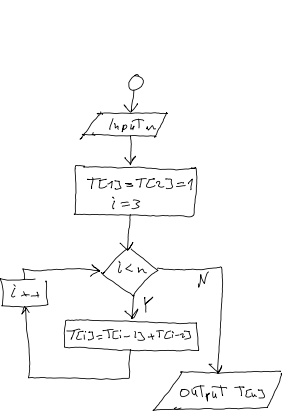 Input n
T[1]=T[2]=1
i=3
i<n
N
Y
i++
T[i]=T[i-1]+T[i-2]
OUTPUT T[n]